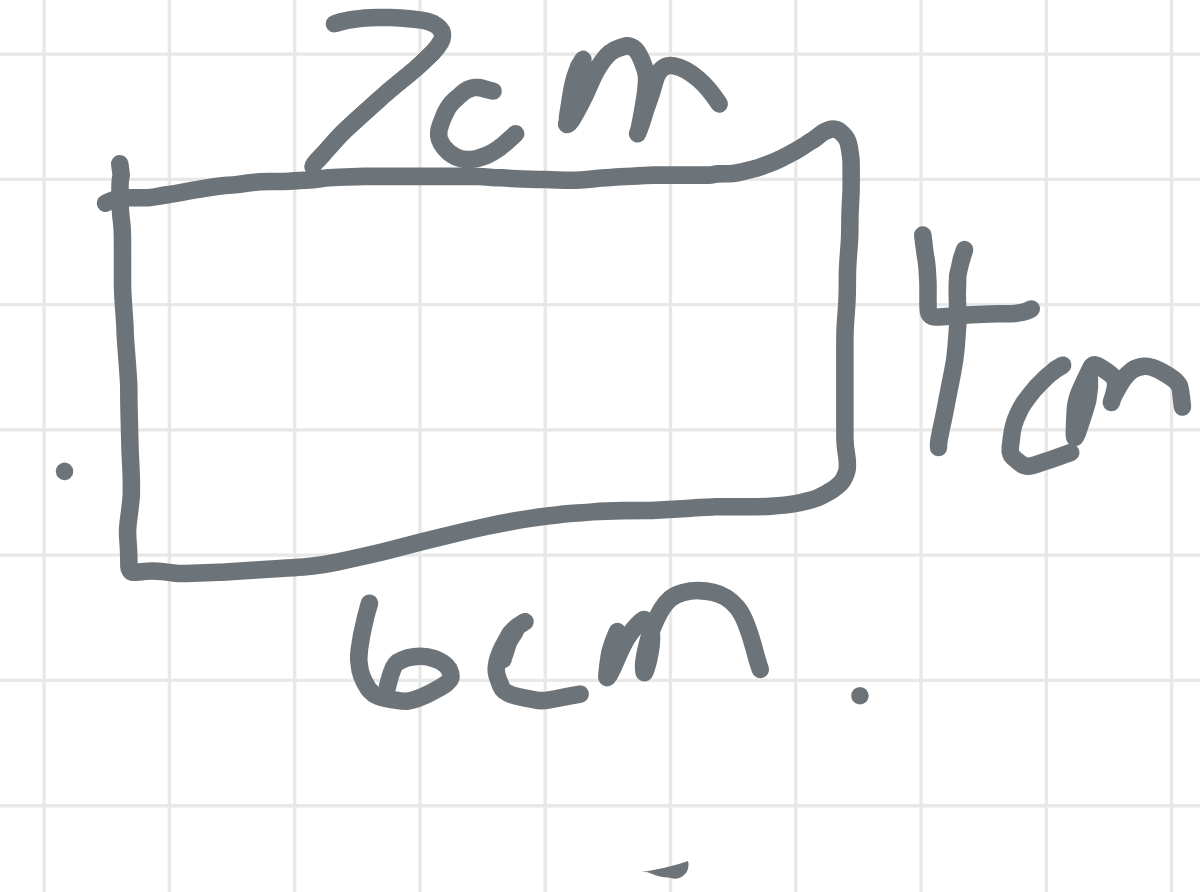 7cm
4cm
6cm